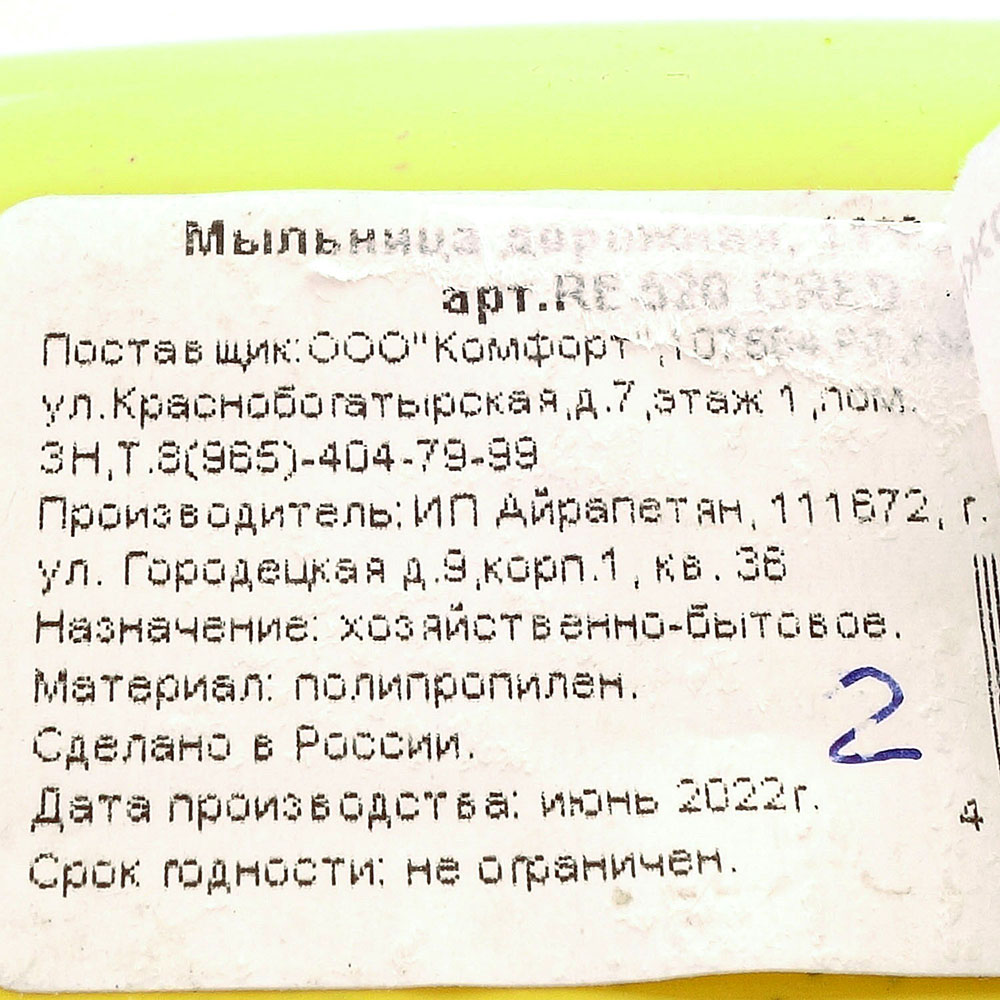 Мыльница дорожная,
арт.RE 520 GRED
Поставщик:ООО"Комфорт",
ул.Краснобогатырская,д.7,этаж 1,пом.
3Н,Т.8(965)-404-79-99
Производитель:ИП Айрапетян, 111672, г.
ул. Городецкая д.9,корп.1, кв. 36
Назначение: хозяйственно-бытовое.
Материал: полипропилен.
2
Сделано в России.
Дата производства: июнь 2022г.
4
Срок годности: не ограничен.